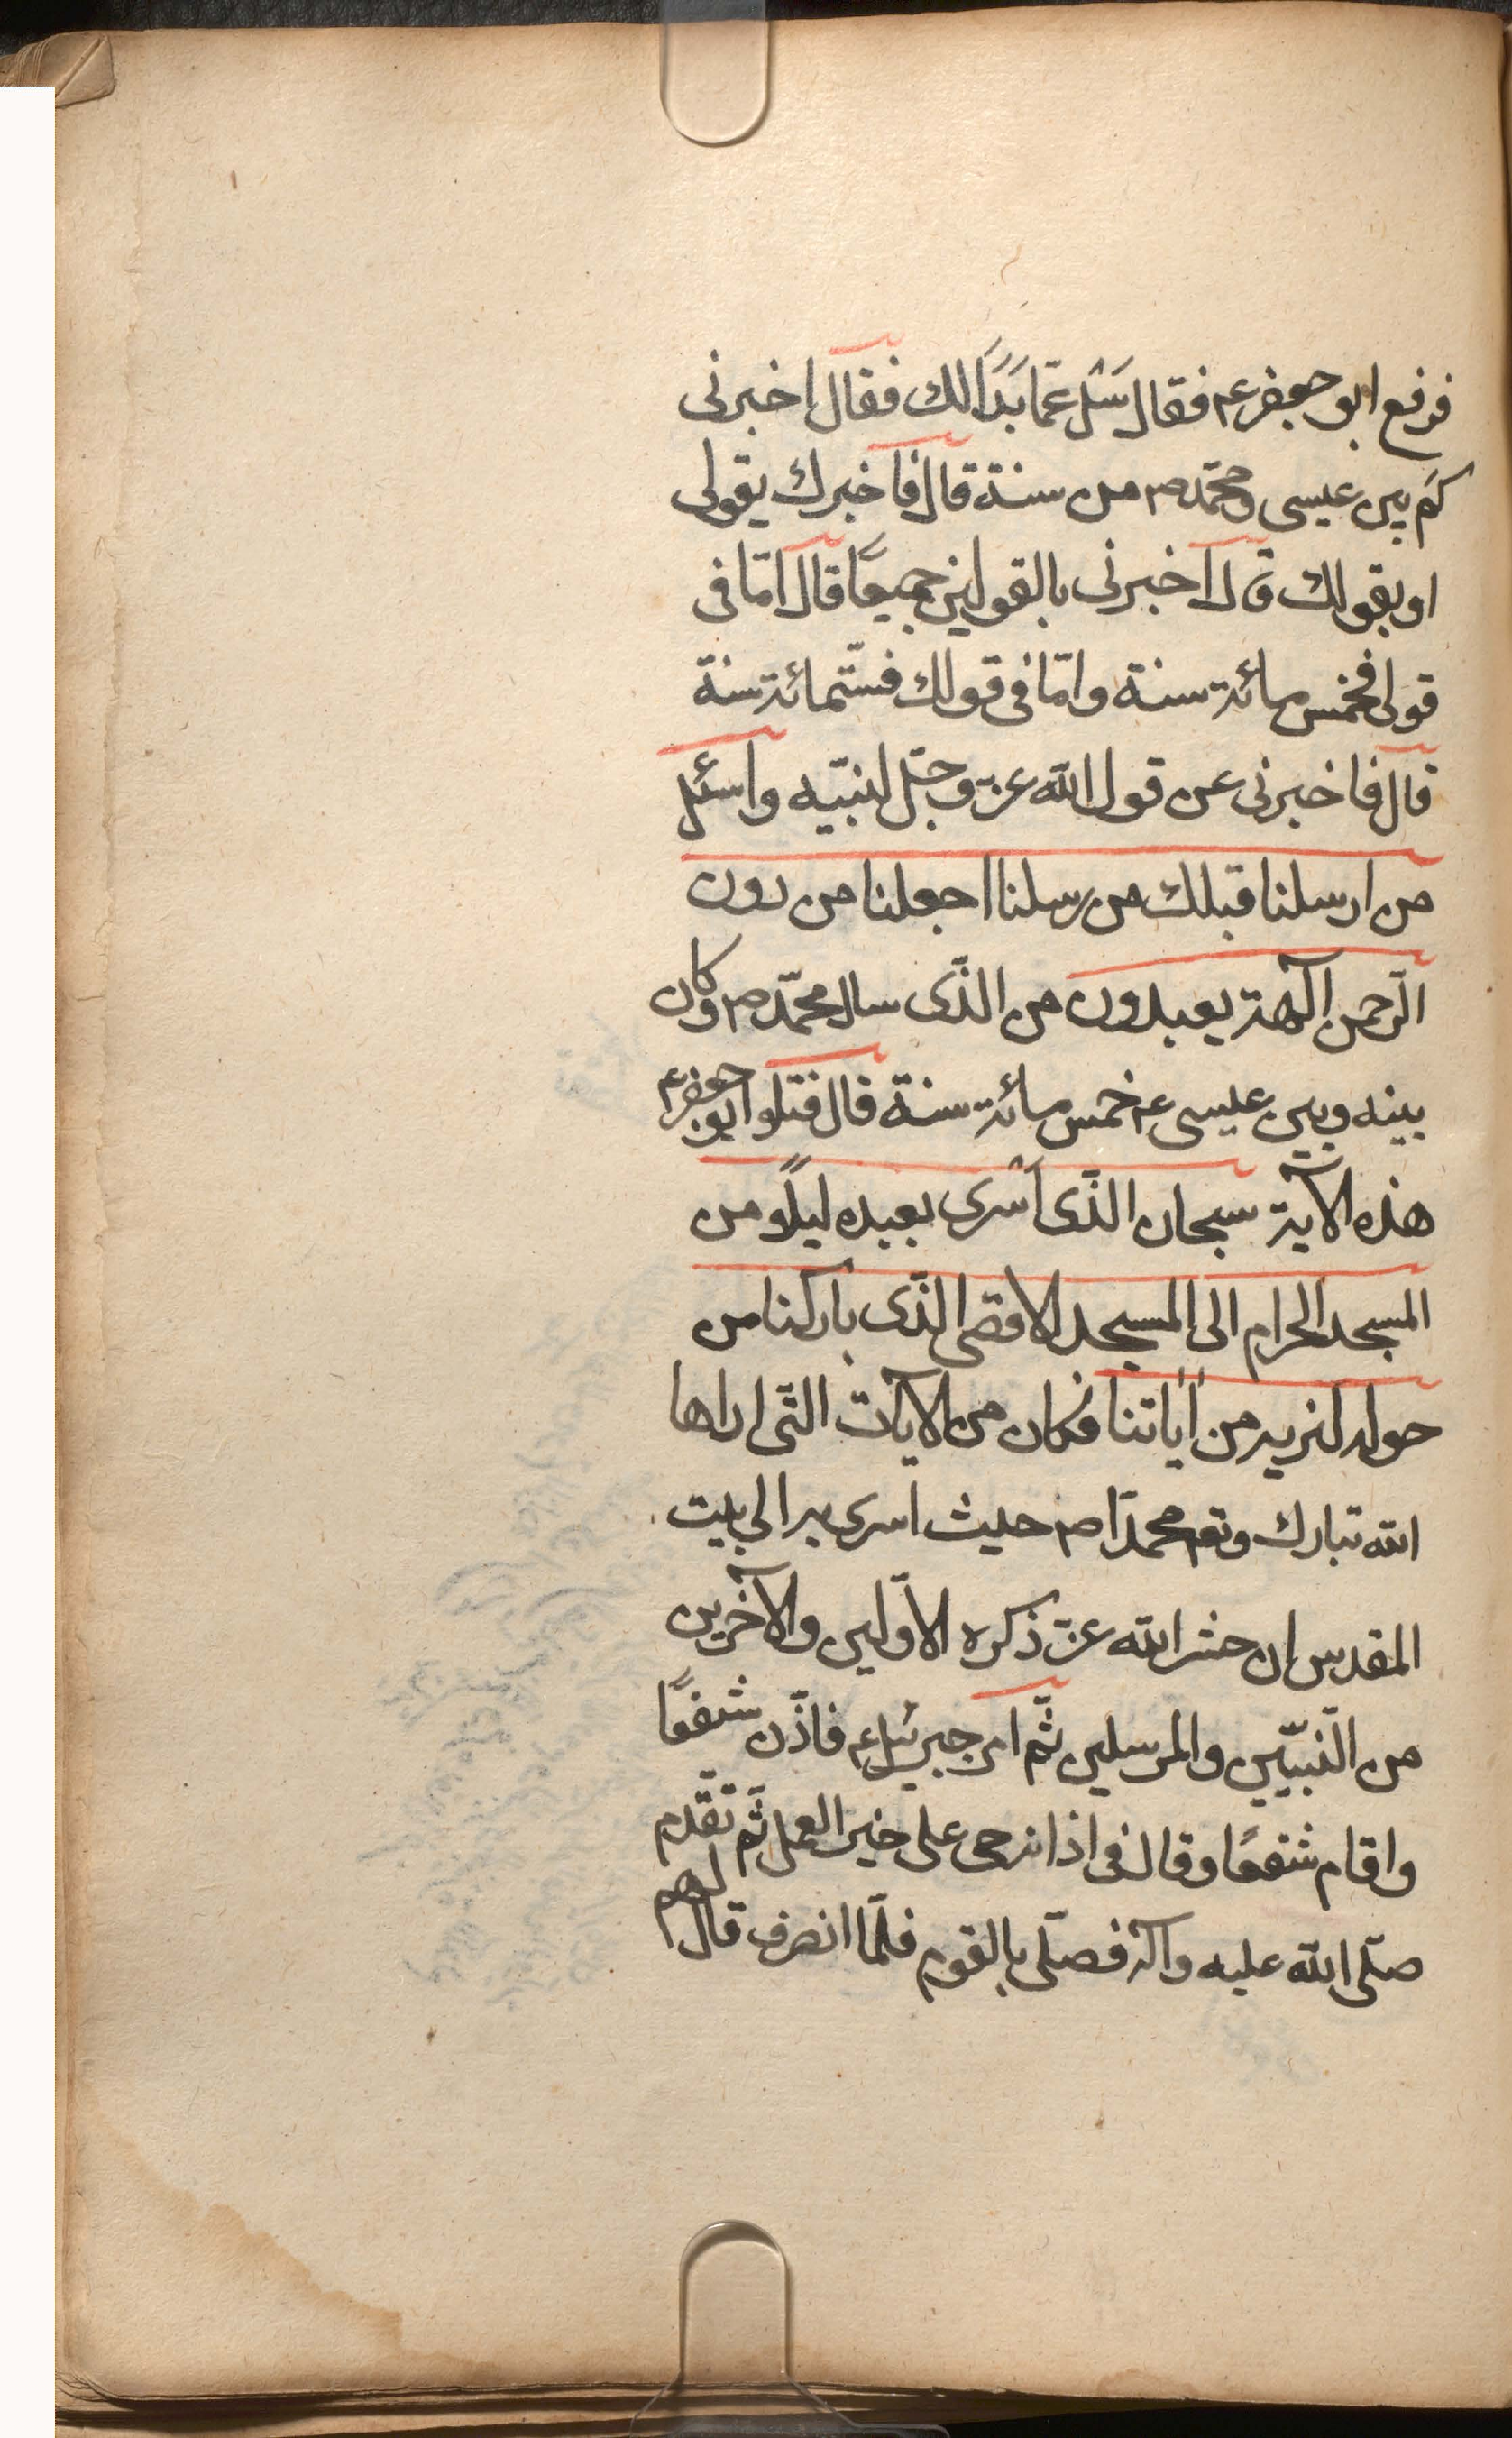 فرفع ابو جعفر عم فقال سَلْ عَمّا بَدَا لك فقال اخبرنى
كَم بين عيسى و محمّد ص من سنة قال فاخبرك بقولى
او بقولك قال اخبرنى بالقولين جميعًا قال امّا فى
قولى فخمس مائة سنة وامّا فى قولك فستّمائة سنة
قال فاخبرنى عن قول الله عز وجّل لنبيّه واسئل
من ارسلنا قبلك من رسلنا اجعلنا من دون
الرّحمن آلهة يعبدون من الذّى سال محمّد ص وكان
بينه وبين عيسى عم خمس مائة سنة قال فتلو ابو جعفر عم
هذه الآية سبحان الذّى اسْرى بعبده ليلًا و من
المسجد الحرام الى المسجد الاقصى الذّى باركنا من
حوله لنريه من اٰياتنا فكان من الآيات التّى اراها
الله تبارك وتعم محمدًا ص حيث اسرى به الى بيت
المقدس ان حشر الله عزّ ذكره الاوّلين والآخرين
من النّبيّين والمرسلين ثّم امر جبرئيل عم فاذّن شفعًا
واقام شفعًا وقال فى اذانه حى على خير العمل ثّم تقّدم
صلّى الله عليه وآله فصلّى بالقوم فلّما انصرف قال لهم